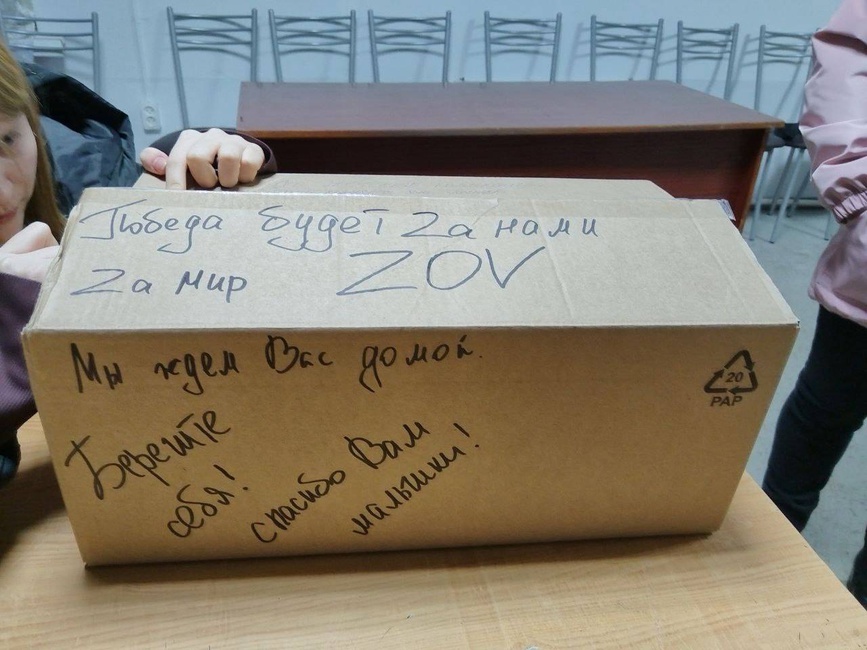 Победа будет Zа нами
Zа мир ZOV
Мы ждем Вас домой.
Берегите
себя!
спасибо Вам
малышки!
20
PAP